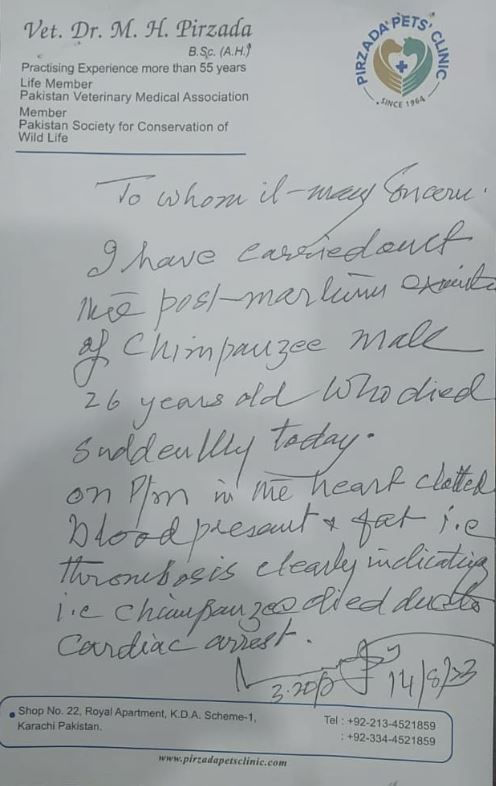 Vet. Dr. M. H. Pirzada
B.Sc. (A.H.)
Practising Experience more than 55 years
Life Member
Pakistan Veterinary Medical Association
Member
Pakistan Society for Conservation of
Wild Life
PIRZADA PETS' CLINIC
SINCE 1964
To whom it-may Concern.
I have carriedout
the post-mortum
of Chimpanzee male
26 years old Who died
Suddenlly today.
on P/m in the heart clotted
blood presant & fat i.e
thrombosis clearly indicating
i.e chimpanzee died due to
Cardiac arrest.
3.20p 14/8/23
Shop No. 22, Royal Apartment, K.D.A. Scheme-1,
Karachi Pakistan.
Tel : +92-213-4521859
: +92-334-4521859
www.pirzadapetsclinic.com